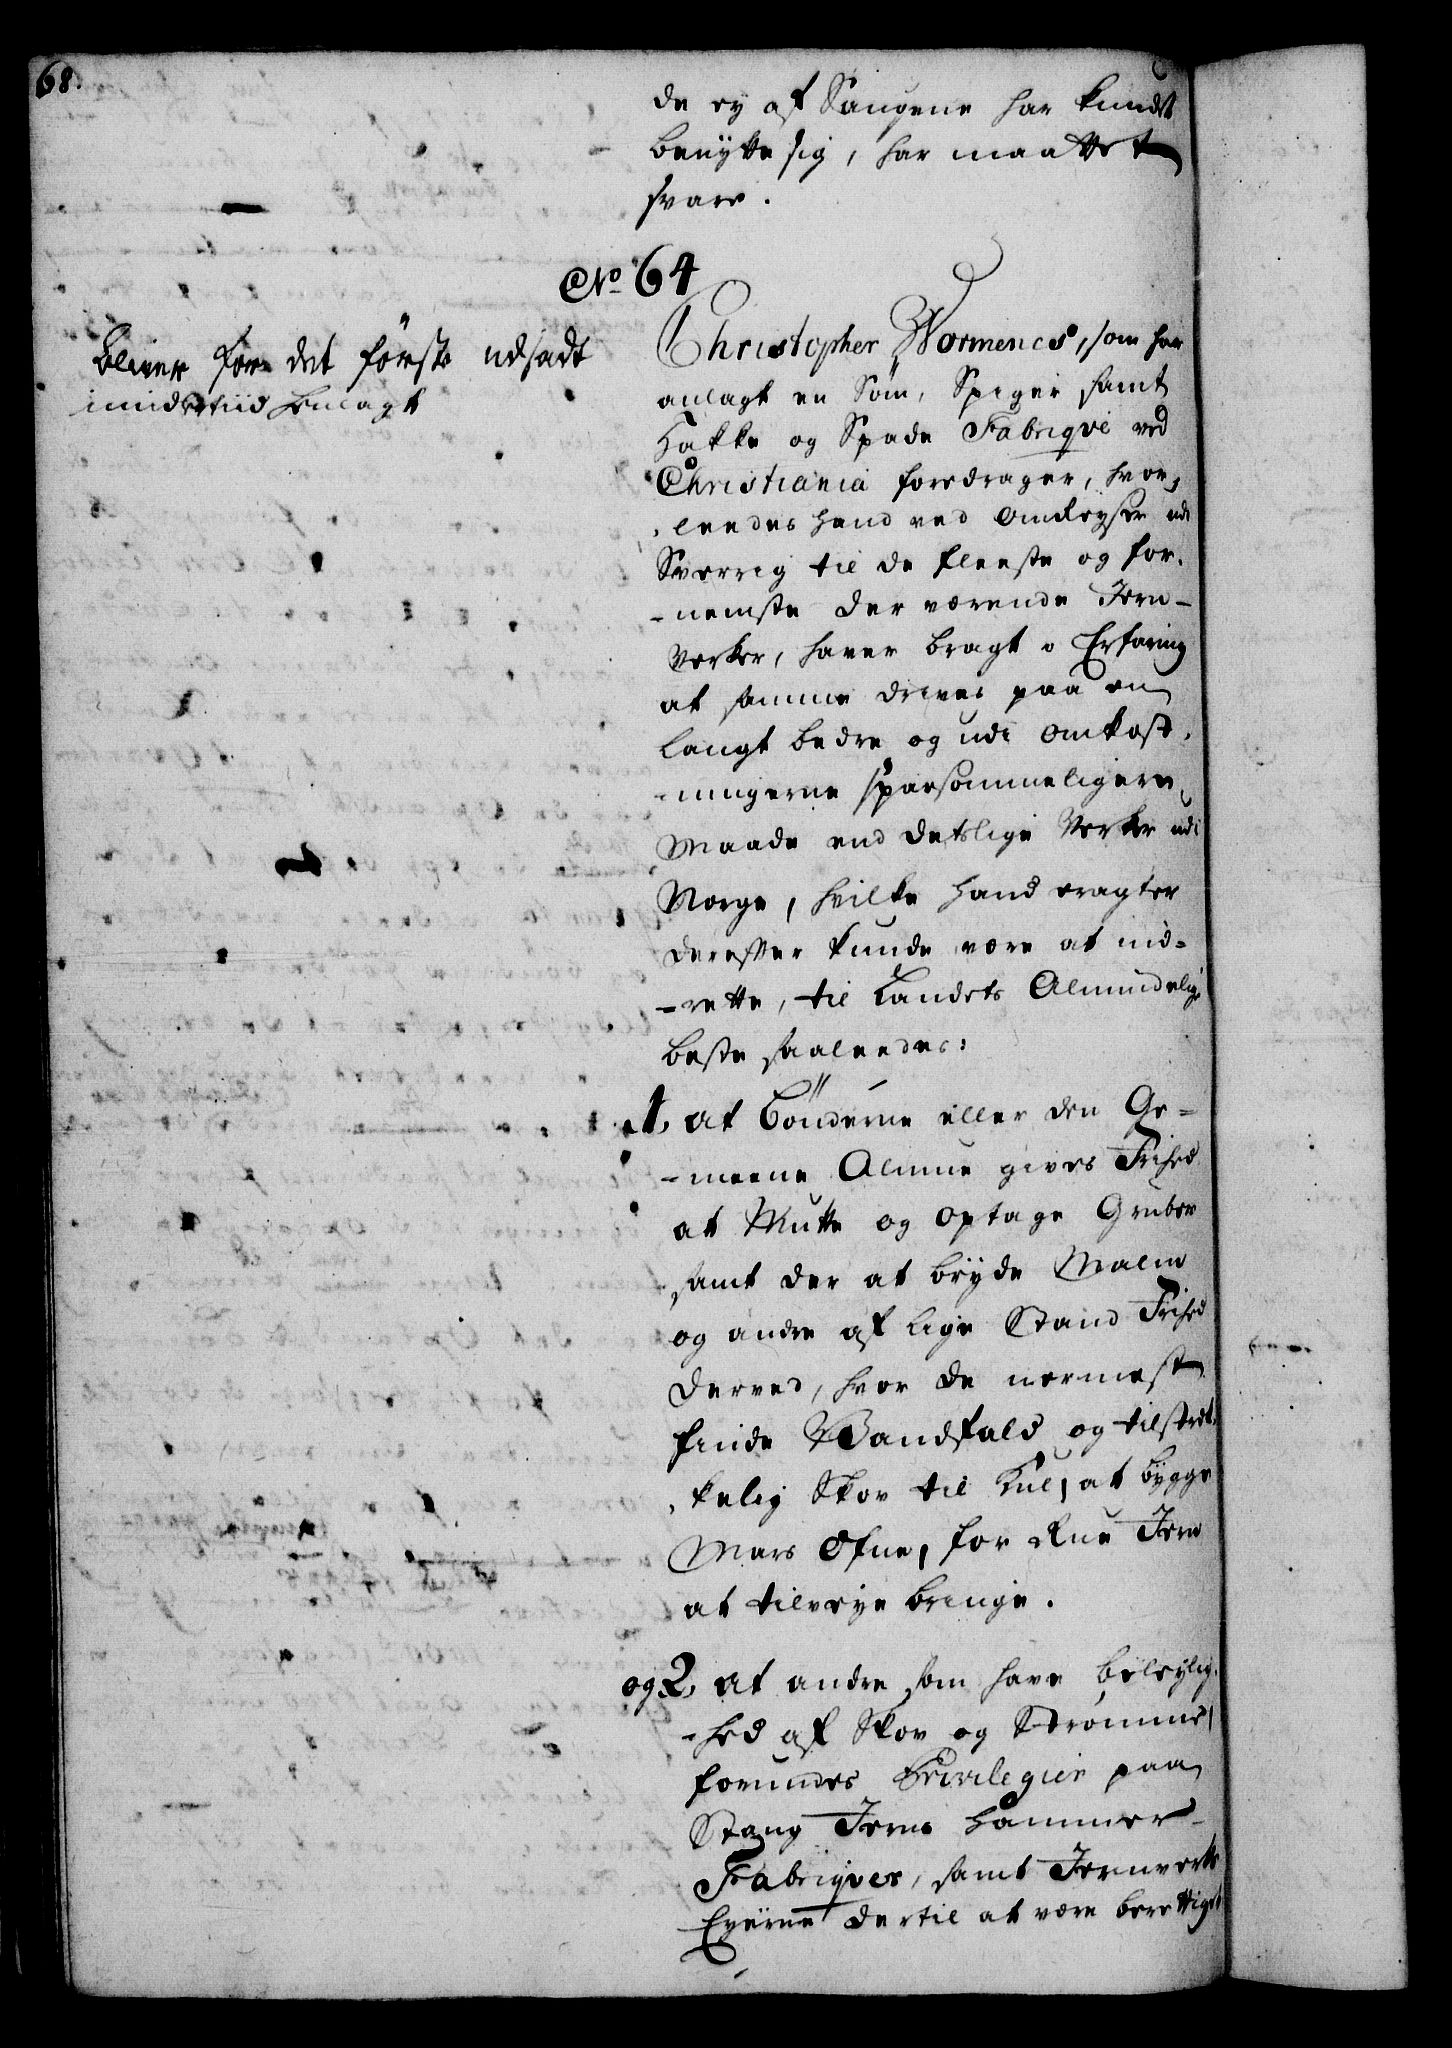 68.
de ey af Saugene har kundet
benÿtte sig, har maattet
svare.
No 64
Bliver for det første udsadt
imidlertiid henlagt
Christopher Wormencs, som har
anlagt en Søm, Spiger samt
Hakke og Spade Fabriqve ved
Christiania foredrager, hvor,
,leedes hand ved Omreyser udi
Sverrig til de fleeste og for,
-nemste der værende Jern-
Verker, haver bragt i Erfaring
at samme drives paa en
langt bedre og udi Omkost,
-ningerne sparsommeligere
Maade end detslige Verker udi
Norge, hvilke hand eragter
derefter kunde være at ind-
-rette, til Landets Almindelige
beste saaleedes:
1, at Bönderne eller den Ge-
-meene Almue gives Frihed
at Mutte og optage Gruber
samt der at brÿde Malm
og andre af lige Stand Frihed
derved, hvor de nermest
finde Vandfald og tilstrek,
,kelig Skov til Kul, at bÿgge
Mars Ofne, for Rue Jern
at tilveye bringe.
og 2, at andre som have beleylig,
-hed af Skov og Strømme,
forundes Privilegier paa
Stang Jerns Hammer-
Fabriqver, samt Jernverks
Eyerne dertil at være berettiget